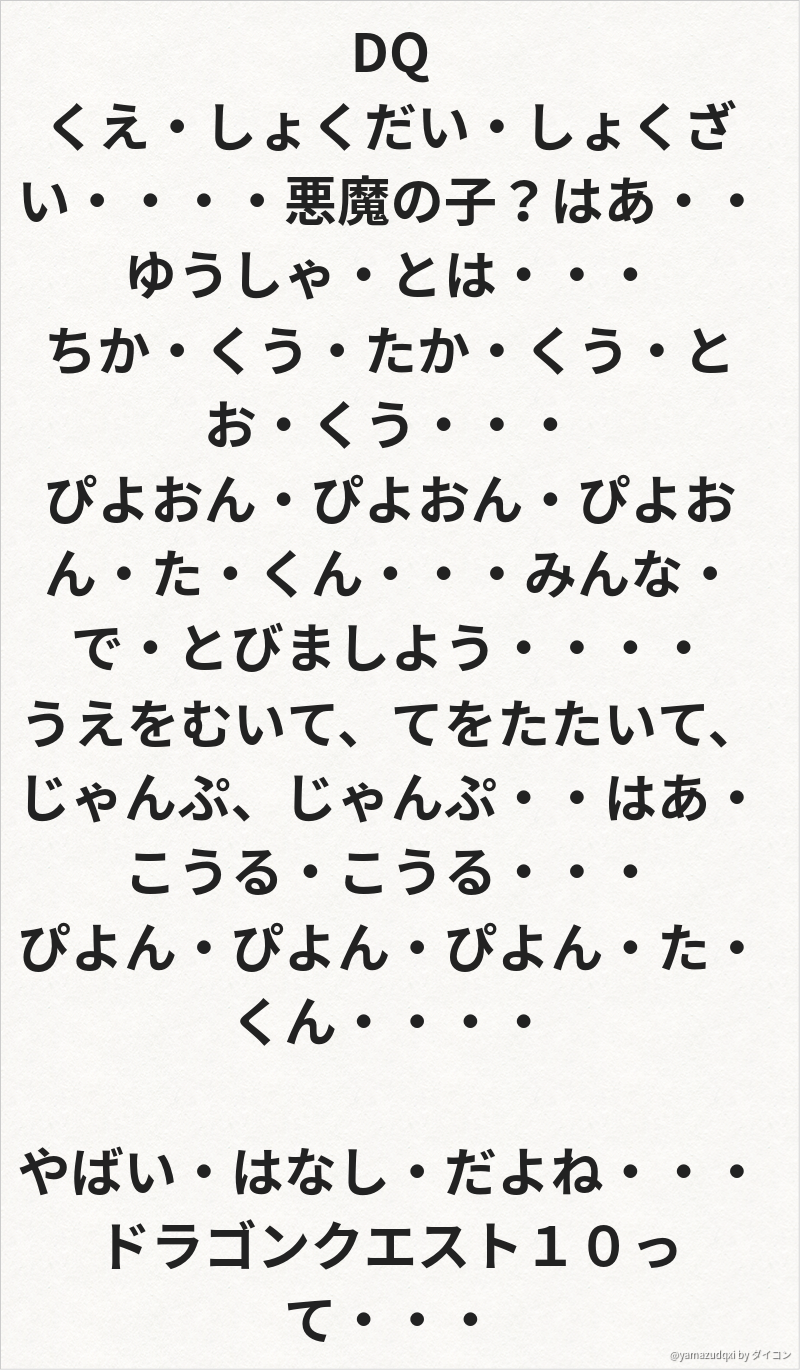 DQ
くえ・しょくだい・しょくざ
い・・・・悪魔の子？はあ・・
ゆうしゃ・とは・・・
ちか・くう・たか・くう・と
お・くう・・・
ぴよおん・ぴよおん・ぴよお
ん・た・くん・・・みんな・
で・とびましよう・・・・
うえをむいて、てをたたいて、
じゃんぷ、じゃんぷ・・はあ・
こうる・こうる・・・
ぴよん・ぴよん・ぴよん・た・
くん・・・・
やばい・はなし・だよね・・・
ドラゴンクエスト１０っ
て・・・
@yamazudqxi by ダイコン